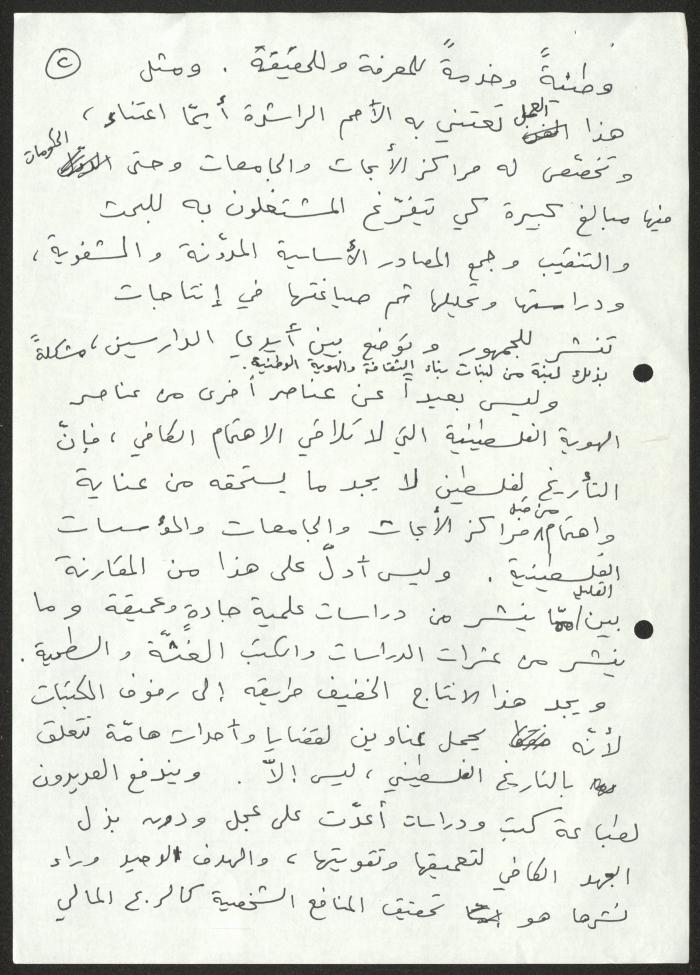 ٢
وطنيةً وخدمةً للمعرفة وللحقيقة . ومثل
هذا العمل تعتني به الأمم الراشدة أيمّا اعتناء ،
وتخصّص له مراكز الأبحاث والجامعات وحتى الحكومات
منها مبالغ كبيرة كي يتفرّغ المشتغلون به للبحث
والتنقيب وجمع المصادر الأساسية المدوّنة والشفوية ،
ودراستها وتحليلها ثم صياغتها في إنتاجات
تنشر للجمهور وتوضع بين أيدي الدارسين ، مشكلةً
بذلك لبنة من لبنات بناء الثقافة والهوية الوطنية .
وليس بعيداً عن عناصر أخرى من عناصر
الهوية الفلسطينية التي لا تلاقي الاهتمام الكافي ، فإنّ
التأريخ لفلسطين لا يجد ما يستحقه من عناية
واهتمام من قبل مراكز الأبحاث والجامعات والمؤسسات
الفلسطينية . وليس أدلّ على هذا من المقارنة
بين القليل مما ينشر من دراسات علمية جادةٍ وعميقة وما
ينشر من عشرات الدراسات والكتب الغثّة والسطحية .
ويجد هذا الانتاج الخفيف طريقه إلى رفوف المكتبات
لأنّه يحمل عناوين لقضايا وأحداث هامّة تتعلق
بالتاريخ الفلسطيني ، ليس إلاّ . ويندفع العديدون
لطباعة كتب ودراسات أعدّت على عجل ودون بذل
الجهد الكافي لتعميقها وتقويتها ، والهدف الوحيد وراء
نشرها هو تحقيق المنافع الشخصية كالربح المالي